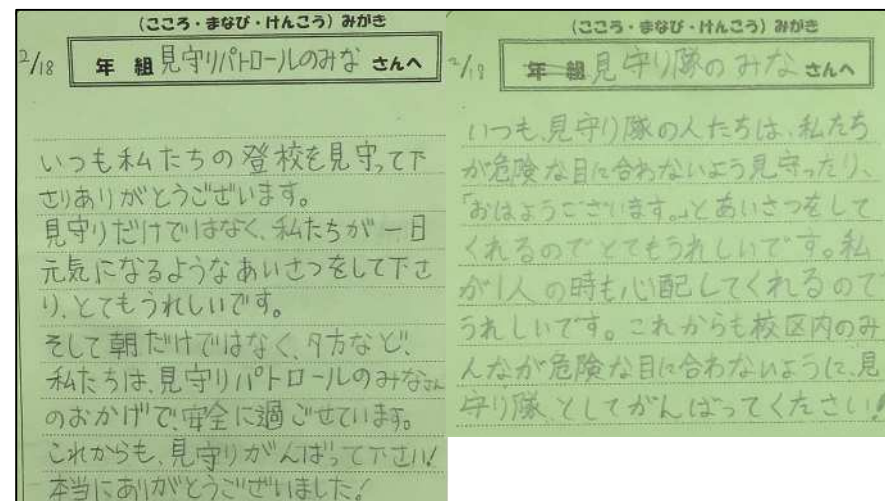 (こころ・まなび・けんこう)みがき
2/18
年 組 見守りパトロールのみな さんへ
いつも私たちの登校を見守って下
さりありがとうございます。
見守りだけではなく、私たちが一日
元気になるようなあいさつをして下さ
り、とてもうれしいです。
そして朝だけではなく、夕方など、
私たちは、見守りパトロールのみなさん
のおかげで、安全に過ごせています。
これからも、見守りがんばって下さい!
本当にありがとうございました!
(こころ・まなび・けんこう)みがき
2/18
年 組 見守り隊のみな さんへ
いつも、見守り隊の人たちは、私たち
が危険な目に合わないよう見守ったり、
「おはようございます。」とあいさつをして
くれるのでとてもうれしいです。私
が1人の時も心配してくれるので
うれしいです。これからも校区内のみ
んなが危険な目に合わないように、見
守り隊としてがんばってください!